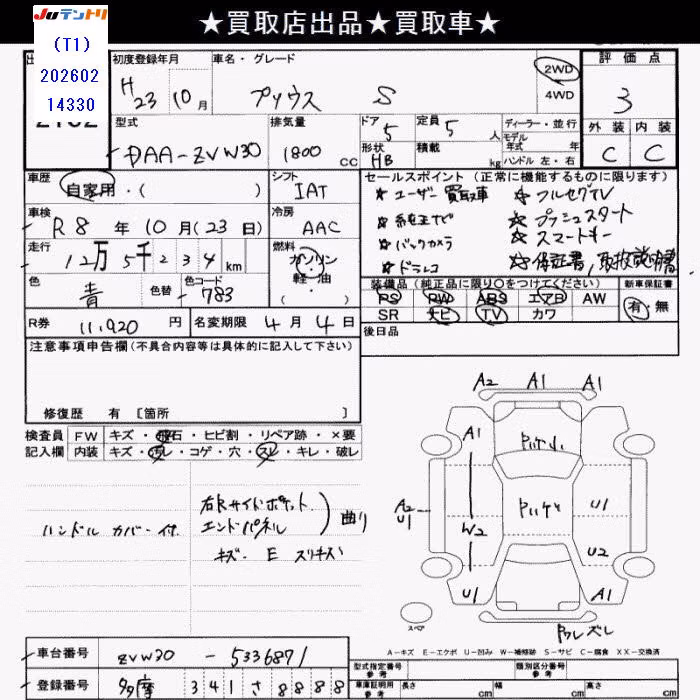 Juテントリ
★買取店出品★買取車★
(T1)
202602
14330
初度登録年月
H23年10月
車名・グレード
プリウス S
2WD
4WD
評価点
3
外装 内装
C C
型式
DAA-ZVW30
排気量
1800 cc
ドア
5
定員
5 人
形状
HB
積載
kg
ディーラー・並行
モデル
年式 年
ハンドル 左・右
車歴
自家用・( )
シフト
IAT
車検
R8年10月(23日)
冷房
AAC
走行
12万5千234 km
燃料
ガソリン
軽・油
( ・ )
色
青
色替
色コード
783
セールスポイント (正常に機能するものに限ります)
★ ユーザー買取車
★ フルセグTV
★ 純正ナビ
★ プッシュスタート
★ バックカメラ
★ スマートキー
★ ドラレコ
★ 保証書、取扱説明書
装備品(純正品に限り○をつけてください)
新車保証書
PS PW ABS エアB AW
SR ナビ TV カワ
有・無
R券
11,920 円
名変期限
4月4日
後日品
注意事項申告欄(不具合内容等は具体的に記入して下さい)
修復歴 有 [箇所 ]
検査員
記入欄
FW キズ・飛石・ヒビ割・リペア跡・×要
内装 キズ・汚レ・コゲ・穴・スレ・キレ・破レ
ハンドルカバー付
右Rサイドポケット
エンドパネル
曲り
キズ・E スリキズ
A2 A1 A1
A1
A2
U1
W2
U1
U1
U2
A1
スペア
A-キズ E-エクボ U-凹み W-補修跡 S-サビ C-腐食 XX-交換済
車台番号
ZVW30-5336871
登録番号
多摩 341 さ 8888
型式指定番号
参考
類別区分番号
参考
車庫証明用
参考
長さ cm
幅 cm
高さ cm